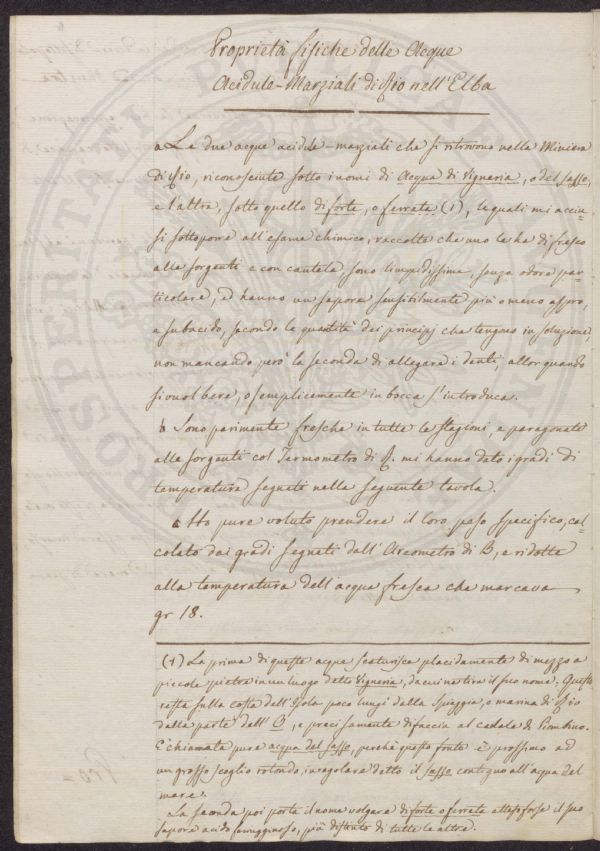 Proprietà fisiche delle Acque
Acidule-Marziali di Rio nell'Elba
a Le due acque acidule-marziali che si ritrovono nelle Miniera
di Rio, riconosciute sotto i nomi di Acqua di Vigneria, o del sasso,
e l'altra, sotto quello di forte, o ferrata (1), le quali mi accin-
si sottoporre all'esame chimico, raccolte che uno le ha di fresco
alle sorgenti e con cautela sono limpidissime, senza odore par-
ticolare, ed hanno un sapore sensibilmente più o meno aspro,
e subacido, secondo le quantità dei principj che tengono in soluzione,
non mancando però la seconda di allegare i denti, allor quando
si vuol bere, o semplicemente in bocca s'introduca.
b Sono parimente fresche in tutte le stagioni, e paragonate
alle sorgenti col Termometro di R. mi hanno dato i gradi di
temperatura segnati nella seguente tavola.
Ho pure voluto prendere il loro peso specifico, cal-
colato dai gradi segnati dall'Areometro di B, e ridotte
alla temperatura dell'acqua fresca che marcava
gr 18.
(1) La prima di queste acque scaturisce placidamente di mezzo a
piccole pietre in un luogo detto Vigneria, da cui ne tira il suo nome. Questo
resta sulla costa dell'Isola poco lungi dalla Spiaggia, o marina di Rio
dalla parte dell' , e precisamente difaccia al canale di Piombino.
È chiamata pure acqua del sasso, perchè questo fonte è prossimo ad
un grosso scoglio rotondo, irregolare detto il sasso contiguo all'acqua del
mare.
La seconda poi porta il nome volgare di forte o ferrata attesoforse il suo
sapore acido ferruginoso, più distinto di tutte le altre.